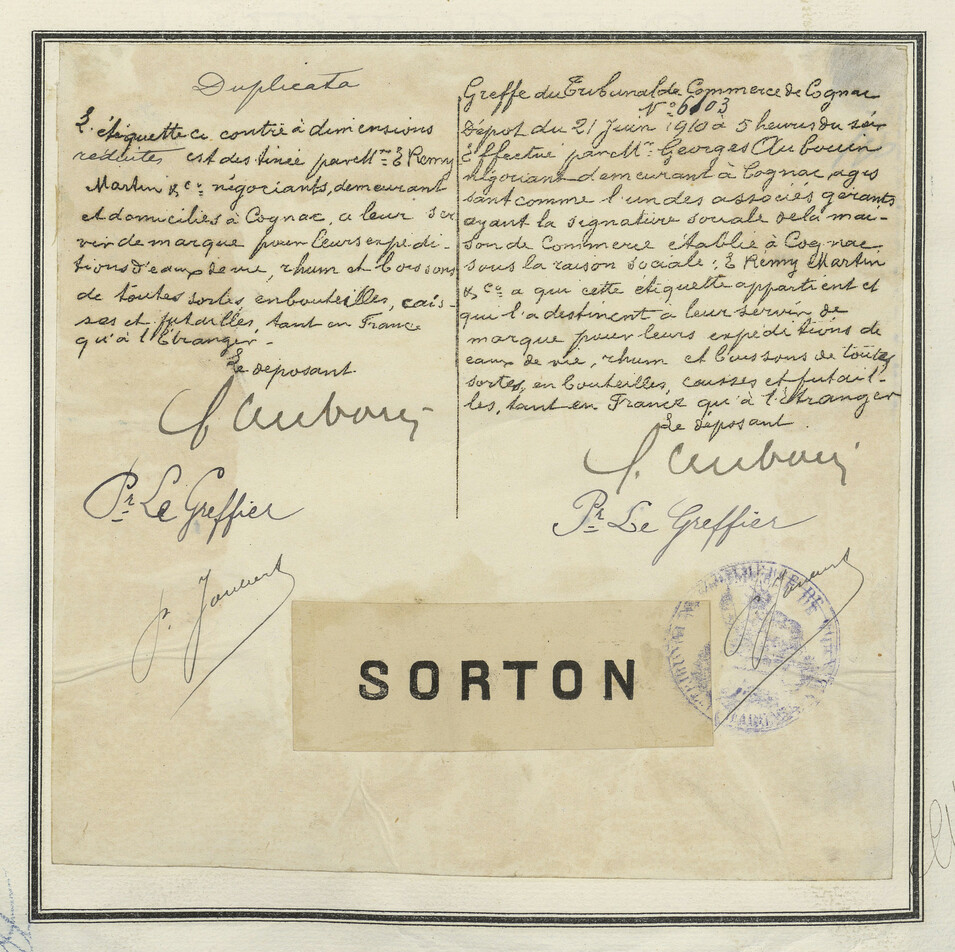 Duplicata
L'étiquette ci contre à dimensions
reduites est destinée par M.rs E Rémy
Martin & Cie négociants, demeurant
et domiciliés à Cognac, a leur ser
vir de marque pour leurs expédi-
tions d'eaux de vie, rhum et boissons
de toutes sortes, en bouteilles, cais-
ses et futailles, tant en France
qu'à l'Etranger.-
Le déposant
G Aubouin
Pr Le Greffier
Greffe du Tribunal de Commerce de Cognac
N° 6103
Dépot du 21 Juin 1910 à 5 heures du soir
Effectué par M.r Georges Aubouin
négociant demeurant à Cognac, agis
sant comme l'un des associés gérants
ayant la signature sociale de la mai-
son de Commerce établie à Cognac
sous la raison sociale: E Rémy Martin
& Co a qui cette étiquette appartient et
qui l'a destinent a leur servir de
marque pour leurs expéditions de
eaux de vie, rhum et boissons de toutes
sortes, en bouteilles, caisses et futail-
les, tant en France qu'à l'étranger
Le déposant
G. Aubouin
Pr Le Greffier
SORTON